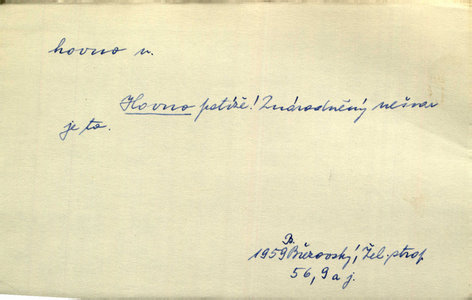 hovno n.
Hovno patíže! Znárodněný nešvar
je to.
B.
1959 Březovský, Žel. strop
56, 9 a j.